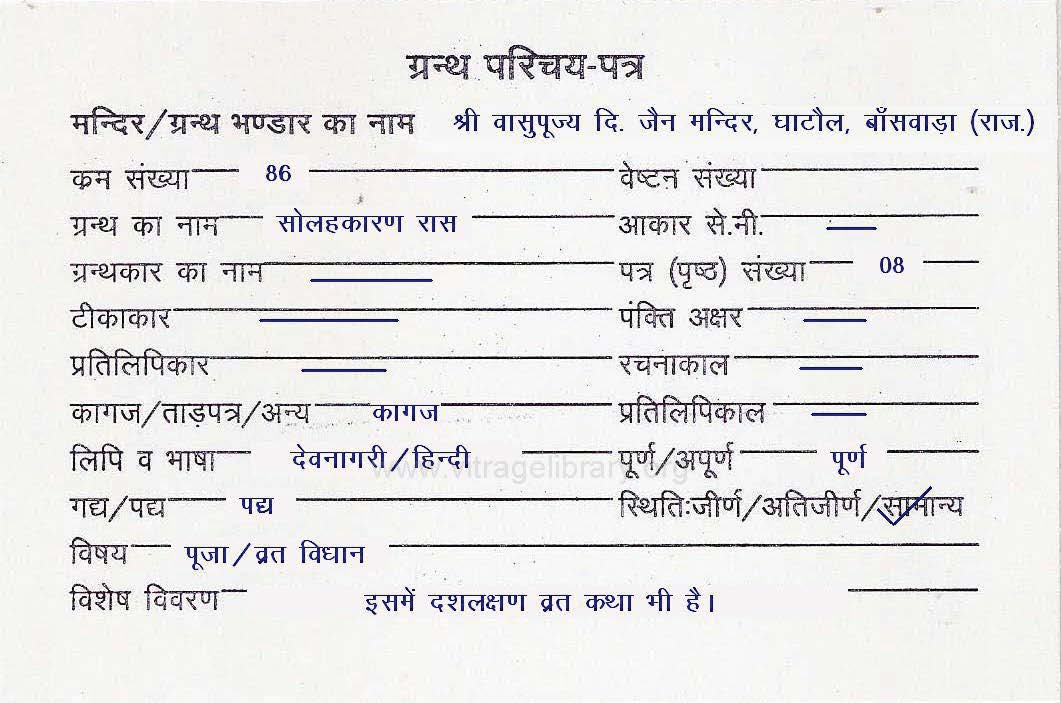 ग्रन्थ परिचय-पत्र
मन्दिर/ग्रन्थ भण्डार का नाम श्री वासुपूज्य दि. जैन मन्दिर, घाटौल, बाँसवाड़ा (राज.)
कम संख्या 86 वेष्टन संख्या
ग्रन्थ का नाम सोलहकारण रास आकार से.मी.
ग्रन्थकार का नाम पत्र (पृष्ठ) संख्या 08
टीकाकार पंक्ति अक्षर
प्रतिलिपिकार रचनाकाल
कागज/ताड़पत्र/अन्य कागज प्रतिलिपिकाल
लिपि व भाषा देवनागरी/हिन्दी पूर्ण/अपूर्ण पूर्ण
www.vitragelibrary.org
गद्य/पद्य पद्य स्थितिःजीर्ण/अतिजीर्ण/सामान्य
विषय पूजा/व्रत विधान
विशेष विवरण इसमें दशलक्षण व्रत कथा भी है।